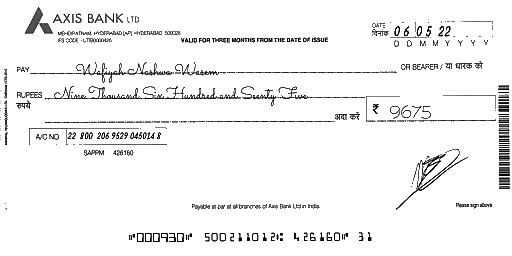 AXIS BANK LTD
MEHDIPATNAM, HYDERABAD (AP) HYDERABAD 500028
IFS CODE : UTIB0000426
VALID FOR THREE MONTHS FROM THE DATE OF ISSUE
DATE
दिनांक 06 05 22
D D M M Y Y Y Y
PAY Wafiyah Nashwa Wasem OR BEARER / या धारक को
RUPEES Nine Thousand Six Hundred and Seenty Five
रुपये अदा करे ₹ 9675
A/C NO 22 800 206 9529 045014 8
SAPPM 426160
Payable at par at all branches of Axis Bank Ltd in India.
Please sign above
⑈000930⑈ 500211012⑆ 426160⑈ 31